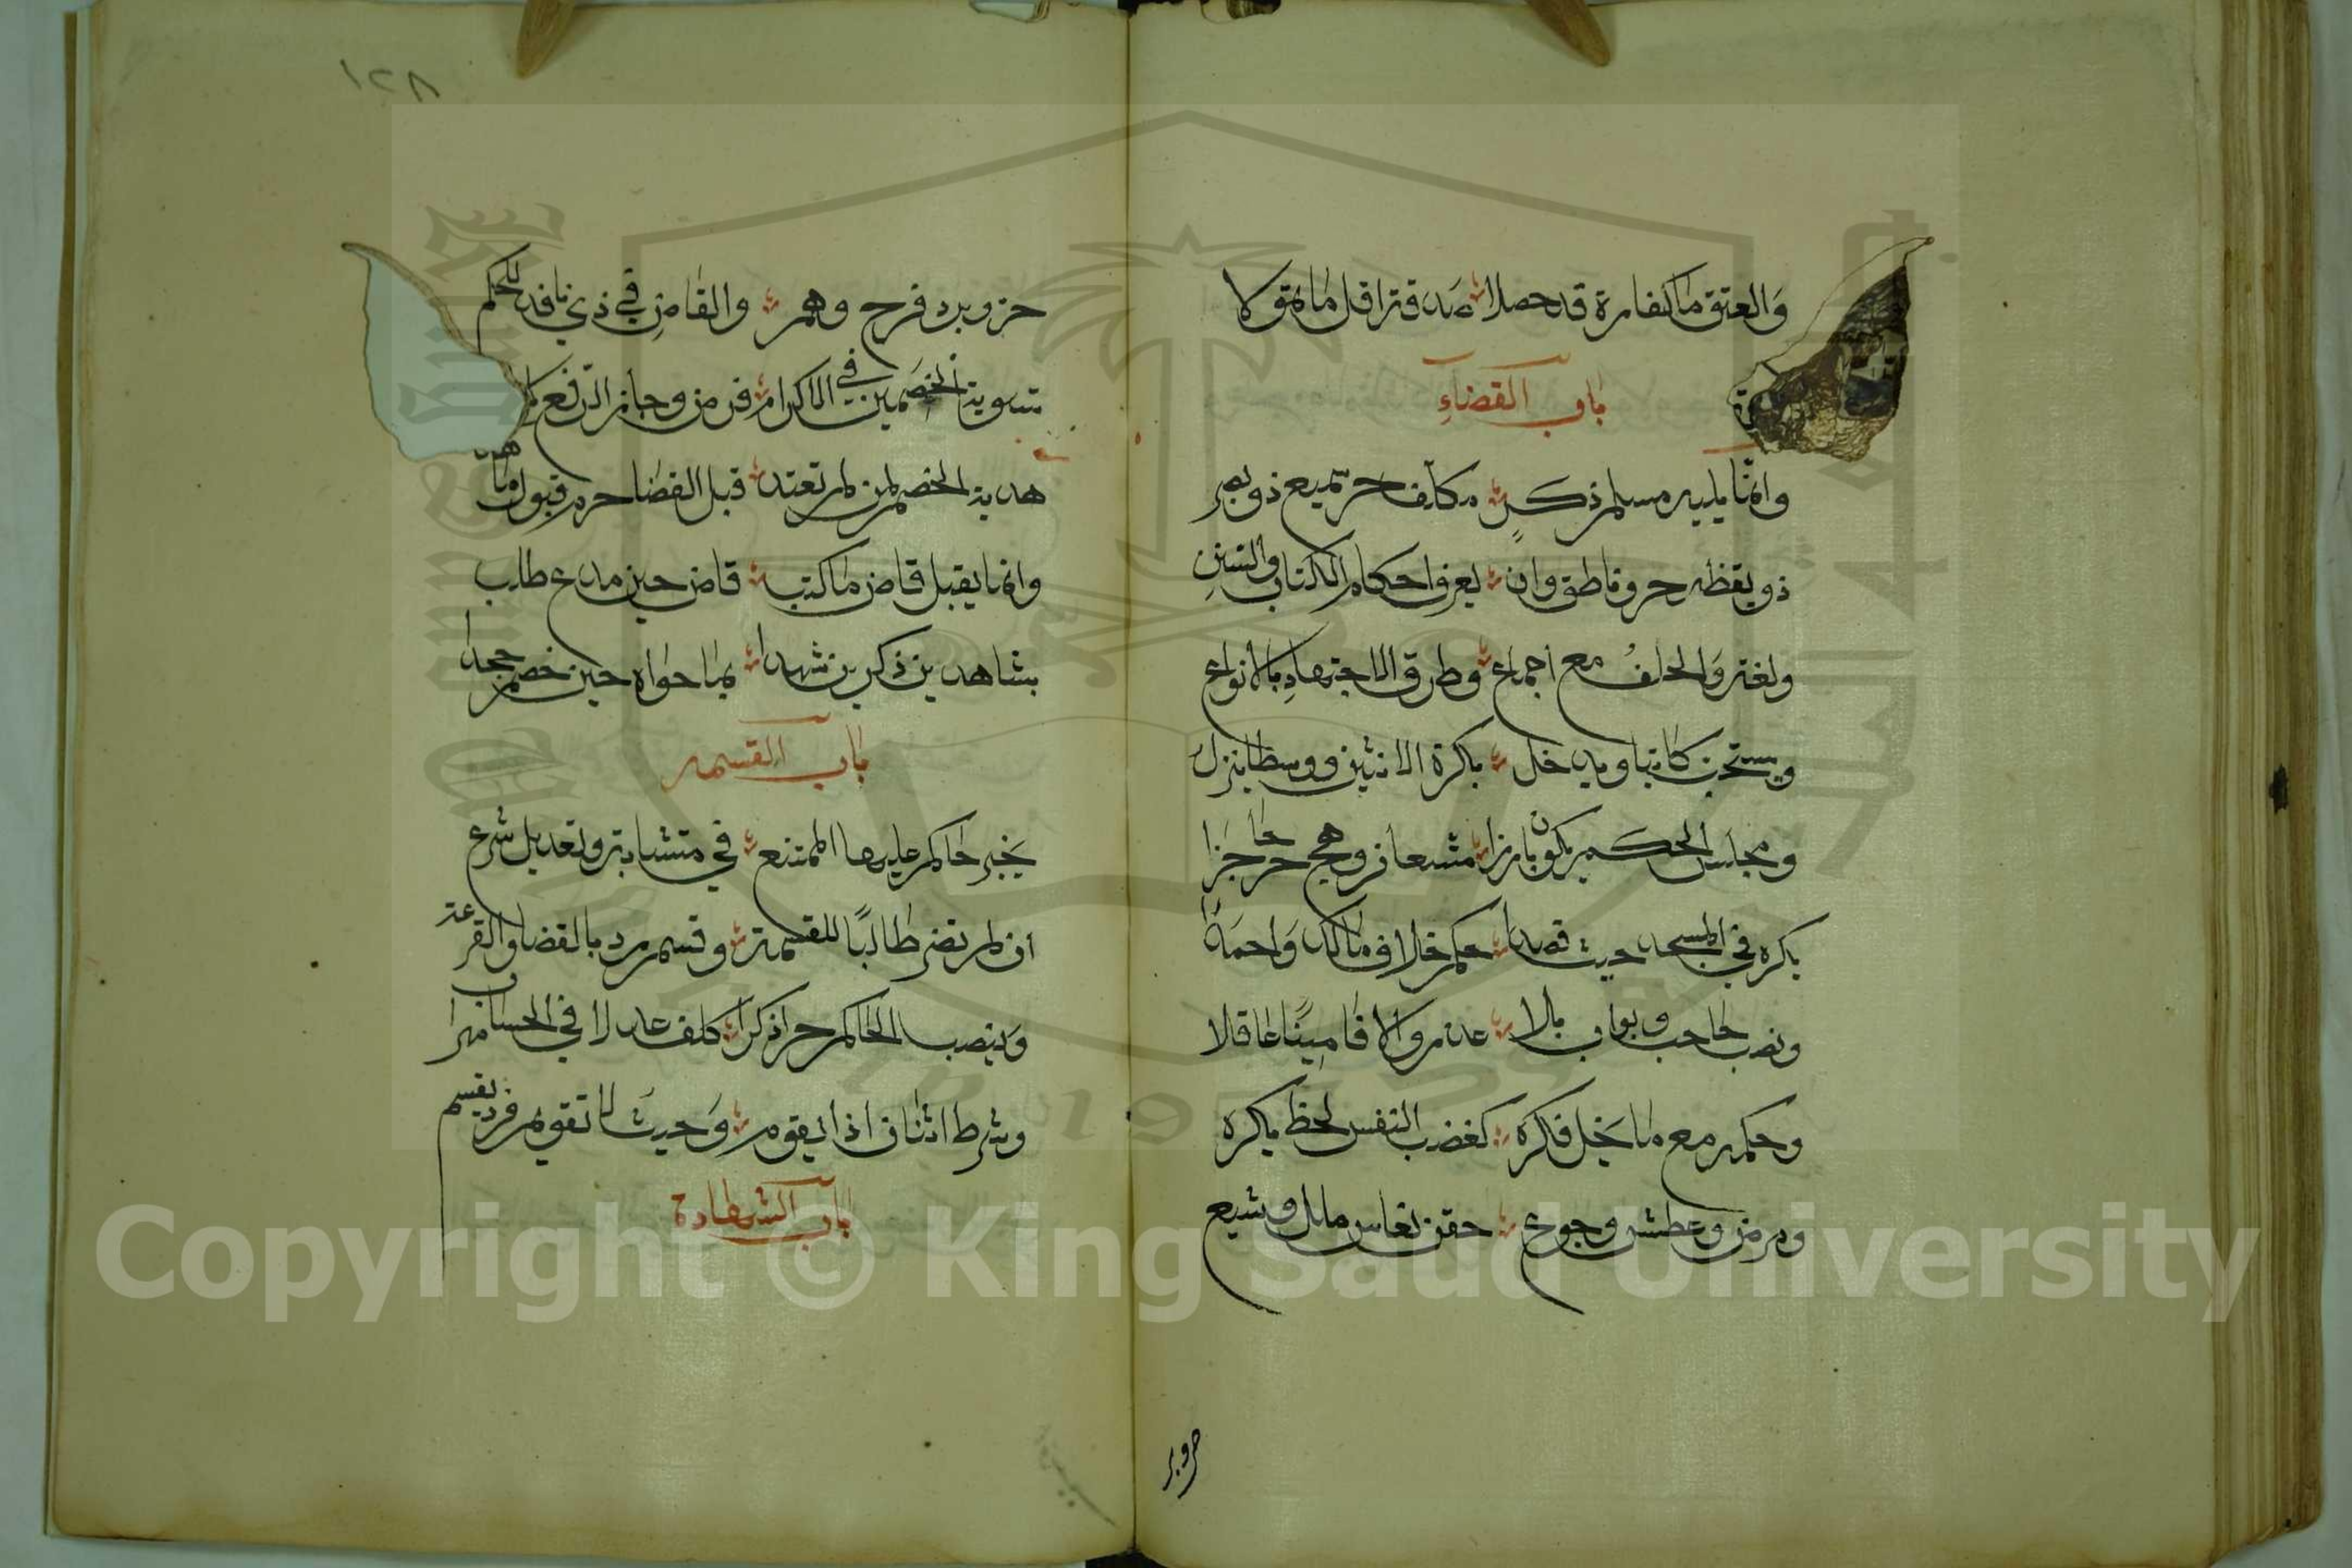 والعتق ما كفارة قد حصلا صدقة اقل ما تمولا
باب القضاء
وانما يليه مسلم ذكر مكلف حر سميع ذو بصر
ذو يقظة حر وناطق وان يعرف احكام الكتاب والسنن
ولغة والخلف مع اجماع وطرق الاجتهاد بالانواع
ويستحب كاتبا ويدخل بكرة الاثنين ووسطا ينزل
ومجلس الحكم يكون بارزا متسعا من وهج حر حاجزا
يكره في المسجد حيث قصدا حكم خلاف مالك واحمدا
ونصب حاجب وبواب بلا عذر والا فامينا عاقلا
وحكمه مع ما يخل فكره كغضب النفس لحظ يكره
ومرض وعطش وجوع حقن نعاس ملل وشبع
حر وبر
١٢٨
حر وبرد فرح وهم والقاض في ذي نافذ للحكم
تسوية الخصمين في الاكرام فرض وجاز الرفع
هدية الخصم لمن لم تعتد قبل القضا حرم قبول ما
وانما يقبل قاض ما كتب قاض حين مدع طلب
بشاهدين ذكرين شهدا بما حواه حين خصم جحدا
باب القسمة
يجبر حاكم عليها الممتنع في متشابه وتعديل شرع
ان لم يضر طالبا للقسمة وقسم رد بالقضا والقرعة
وينصب الحاكم حرا ذكرا كلف عدلا في الحساب مهرا
وشرط اثنان اذا يقوم وحيث لا تقويم فرد يقسم
باب الشهادة
Copyright © King Saud University